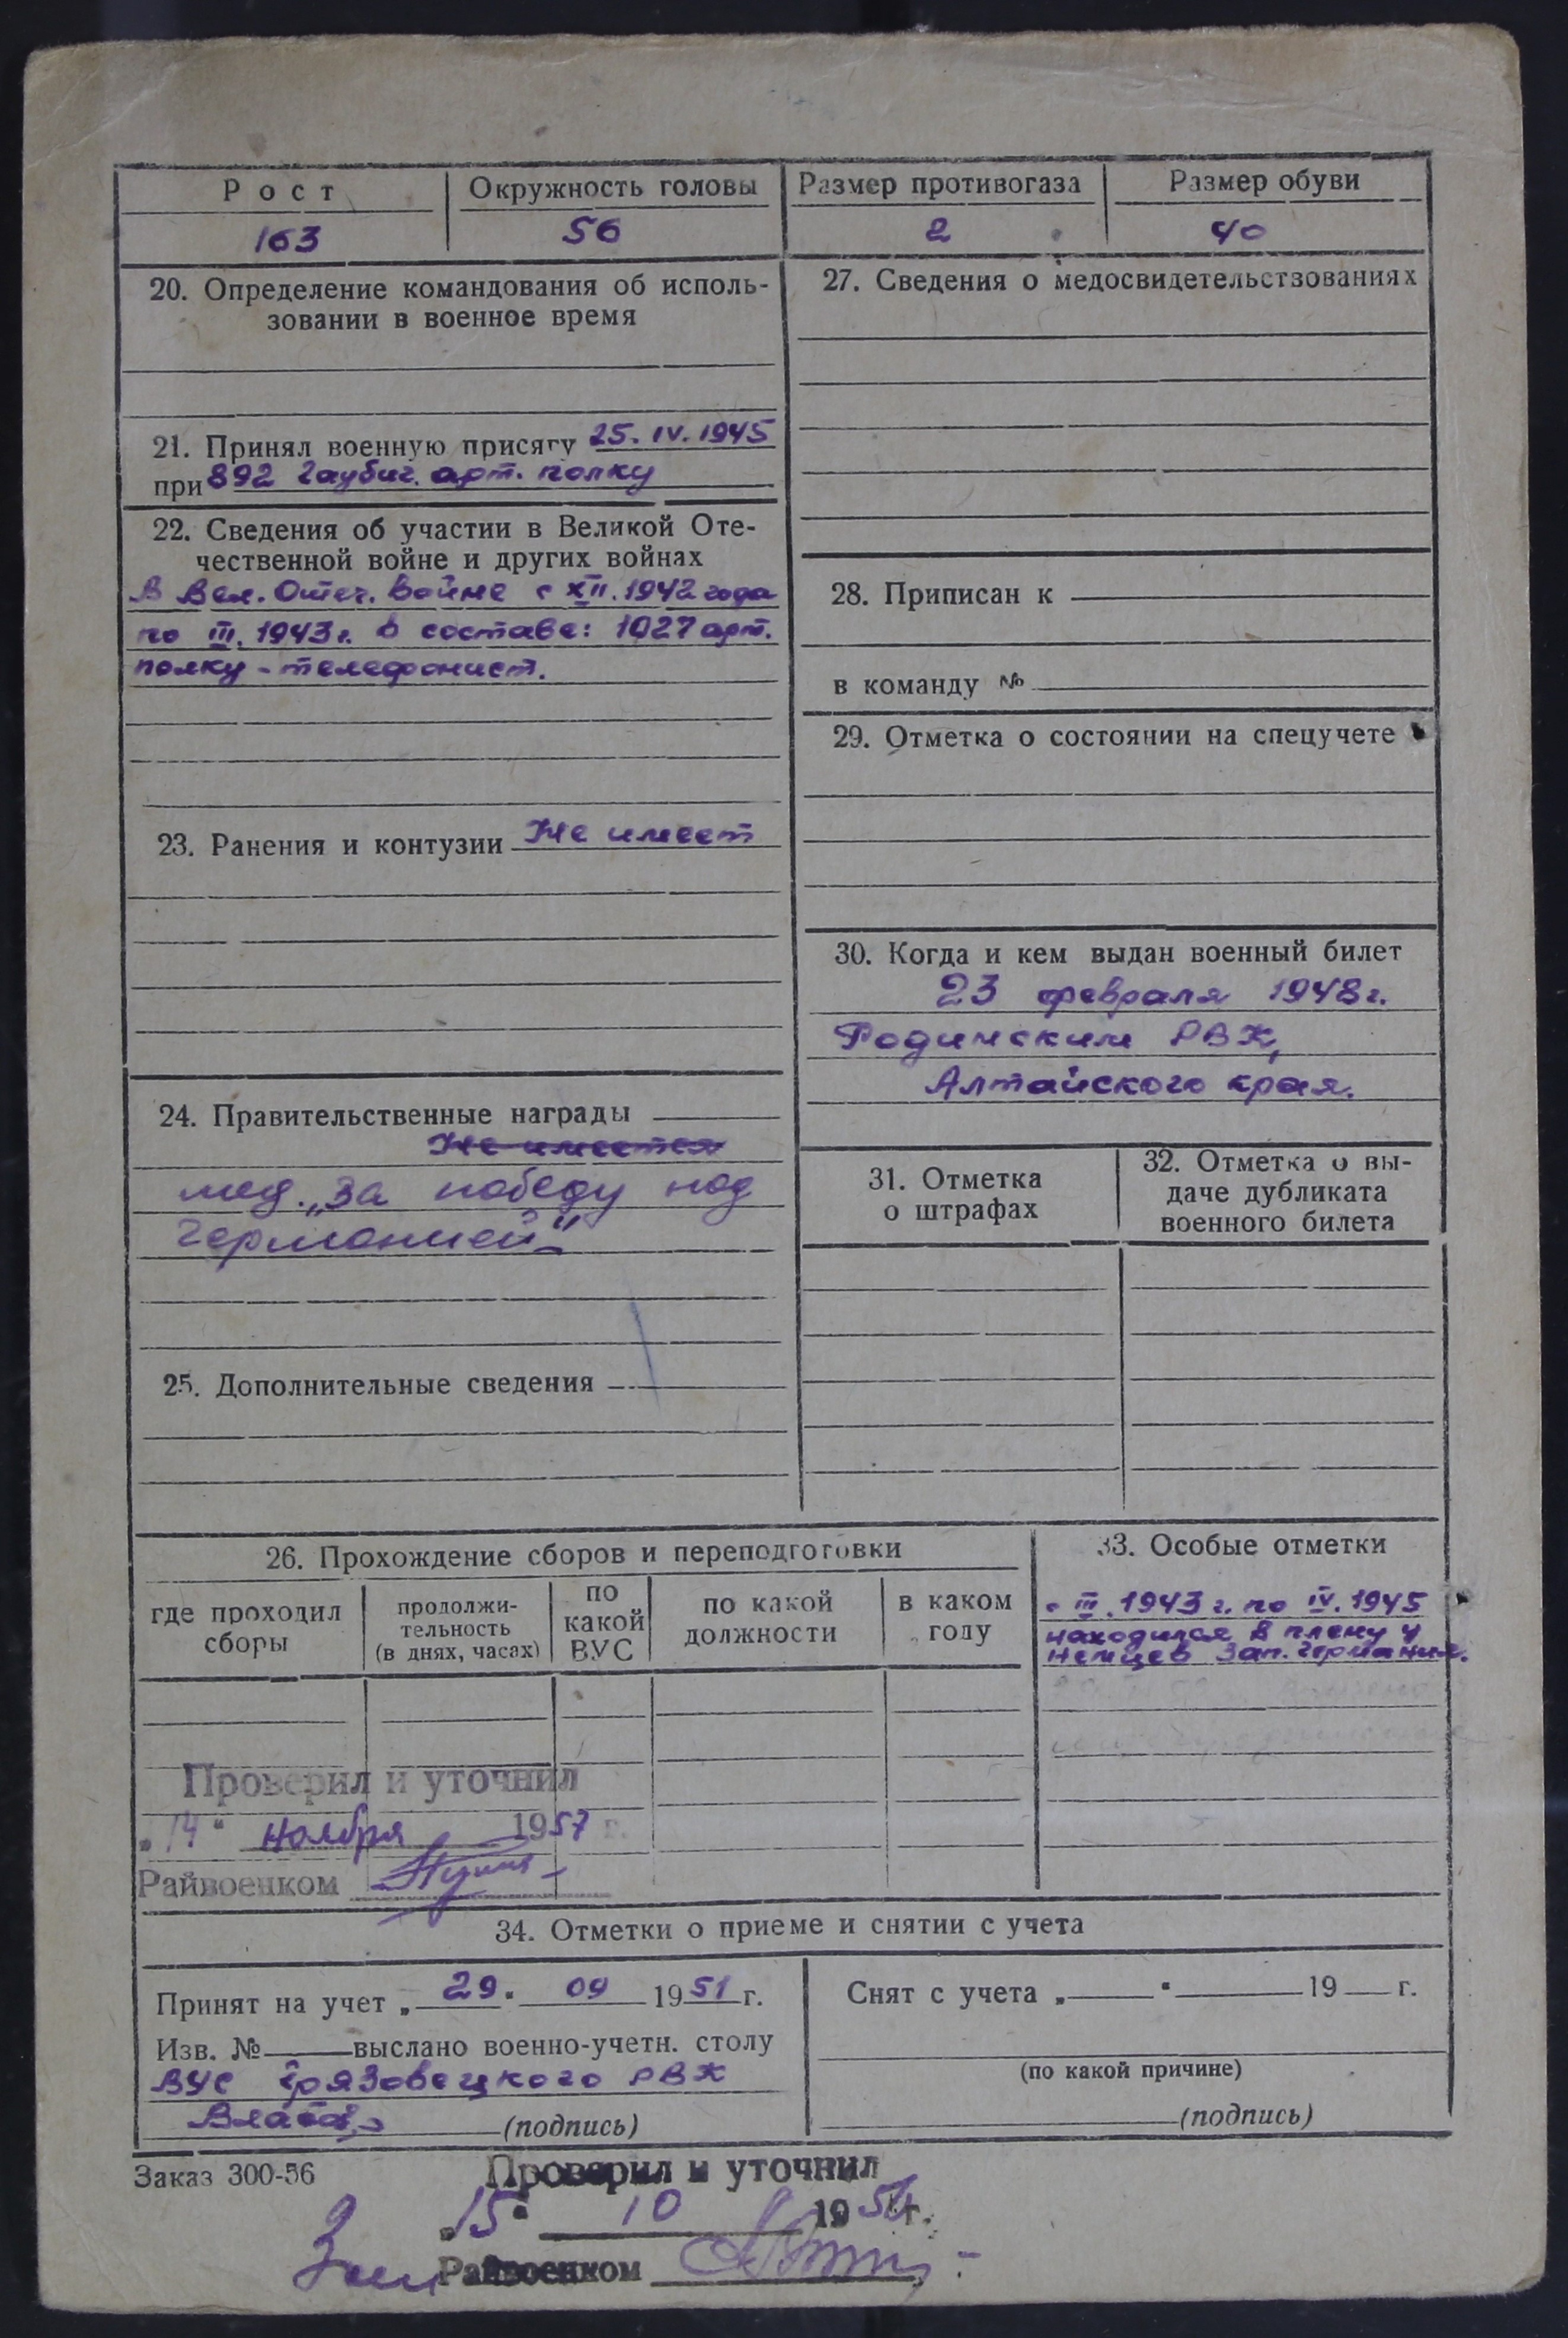 Рост Окружность головы Размер противогаза Размер обуви
163 56 2 40
20. Определение командования об исполь-
зовании в военное время
21. Принял военную присягу 25. IV. 1945
при 892 гаубич. арт. полку
22. Сведения об участии в Великой Оте-
чественной войне и других войнах
В Вел. Отеч. войне с XII. 1942 года
по III. 1943 г. в составе: 1027 арт.
полку - телефонист.
23. Ранения и контузии Не имеет
24. Правительственные награды
Не имеется
мед. „За победу над
Германией"
25. Дополнительные сведения
27. Сведения о медосвидетельствованиях
28. Приписан к
в команду №
29. Отметка о состоянии на спецучете
30. Когда и кем выдан военный билет
23 февраля 1948 г.
Родинским РВК,
Алтайского края.
31. Отметка
о штрафах
32. Отметка о вы-
даче дубликата
военного билета
26. Прохождение сборов и переподготовки
где проходил
сборы
продолжи-
тельность
(в днях, часах)
по
какой
ВУС
по какой
должности
в каком
году
33. Особые отметки
с III. 1943 г. по IV. 1945
находился в плену у
немцев Зап. Германия.
Проверил и уточнил
„14" ноября 1957 г.
Райвоенком
34. Отметки о приеме и снятии с учета
Принят на учет „29" 09 1951 г.
Изв. № выслано военно-учетн. столу
ВУС Грязовецкого РВК
(подпись)
Снят с учета „ " 19 г.
(по какой причине)
(подпись)
Заказ 300-56
Проверил и уточнил
„15" 10 195 г.
Райвоенком